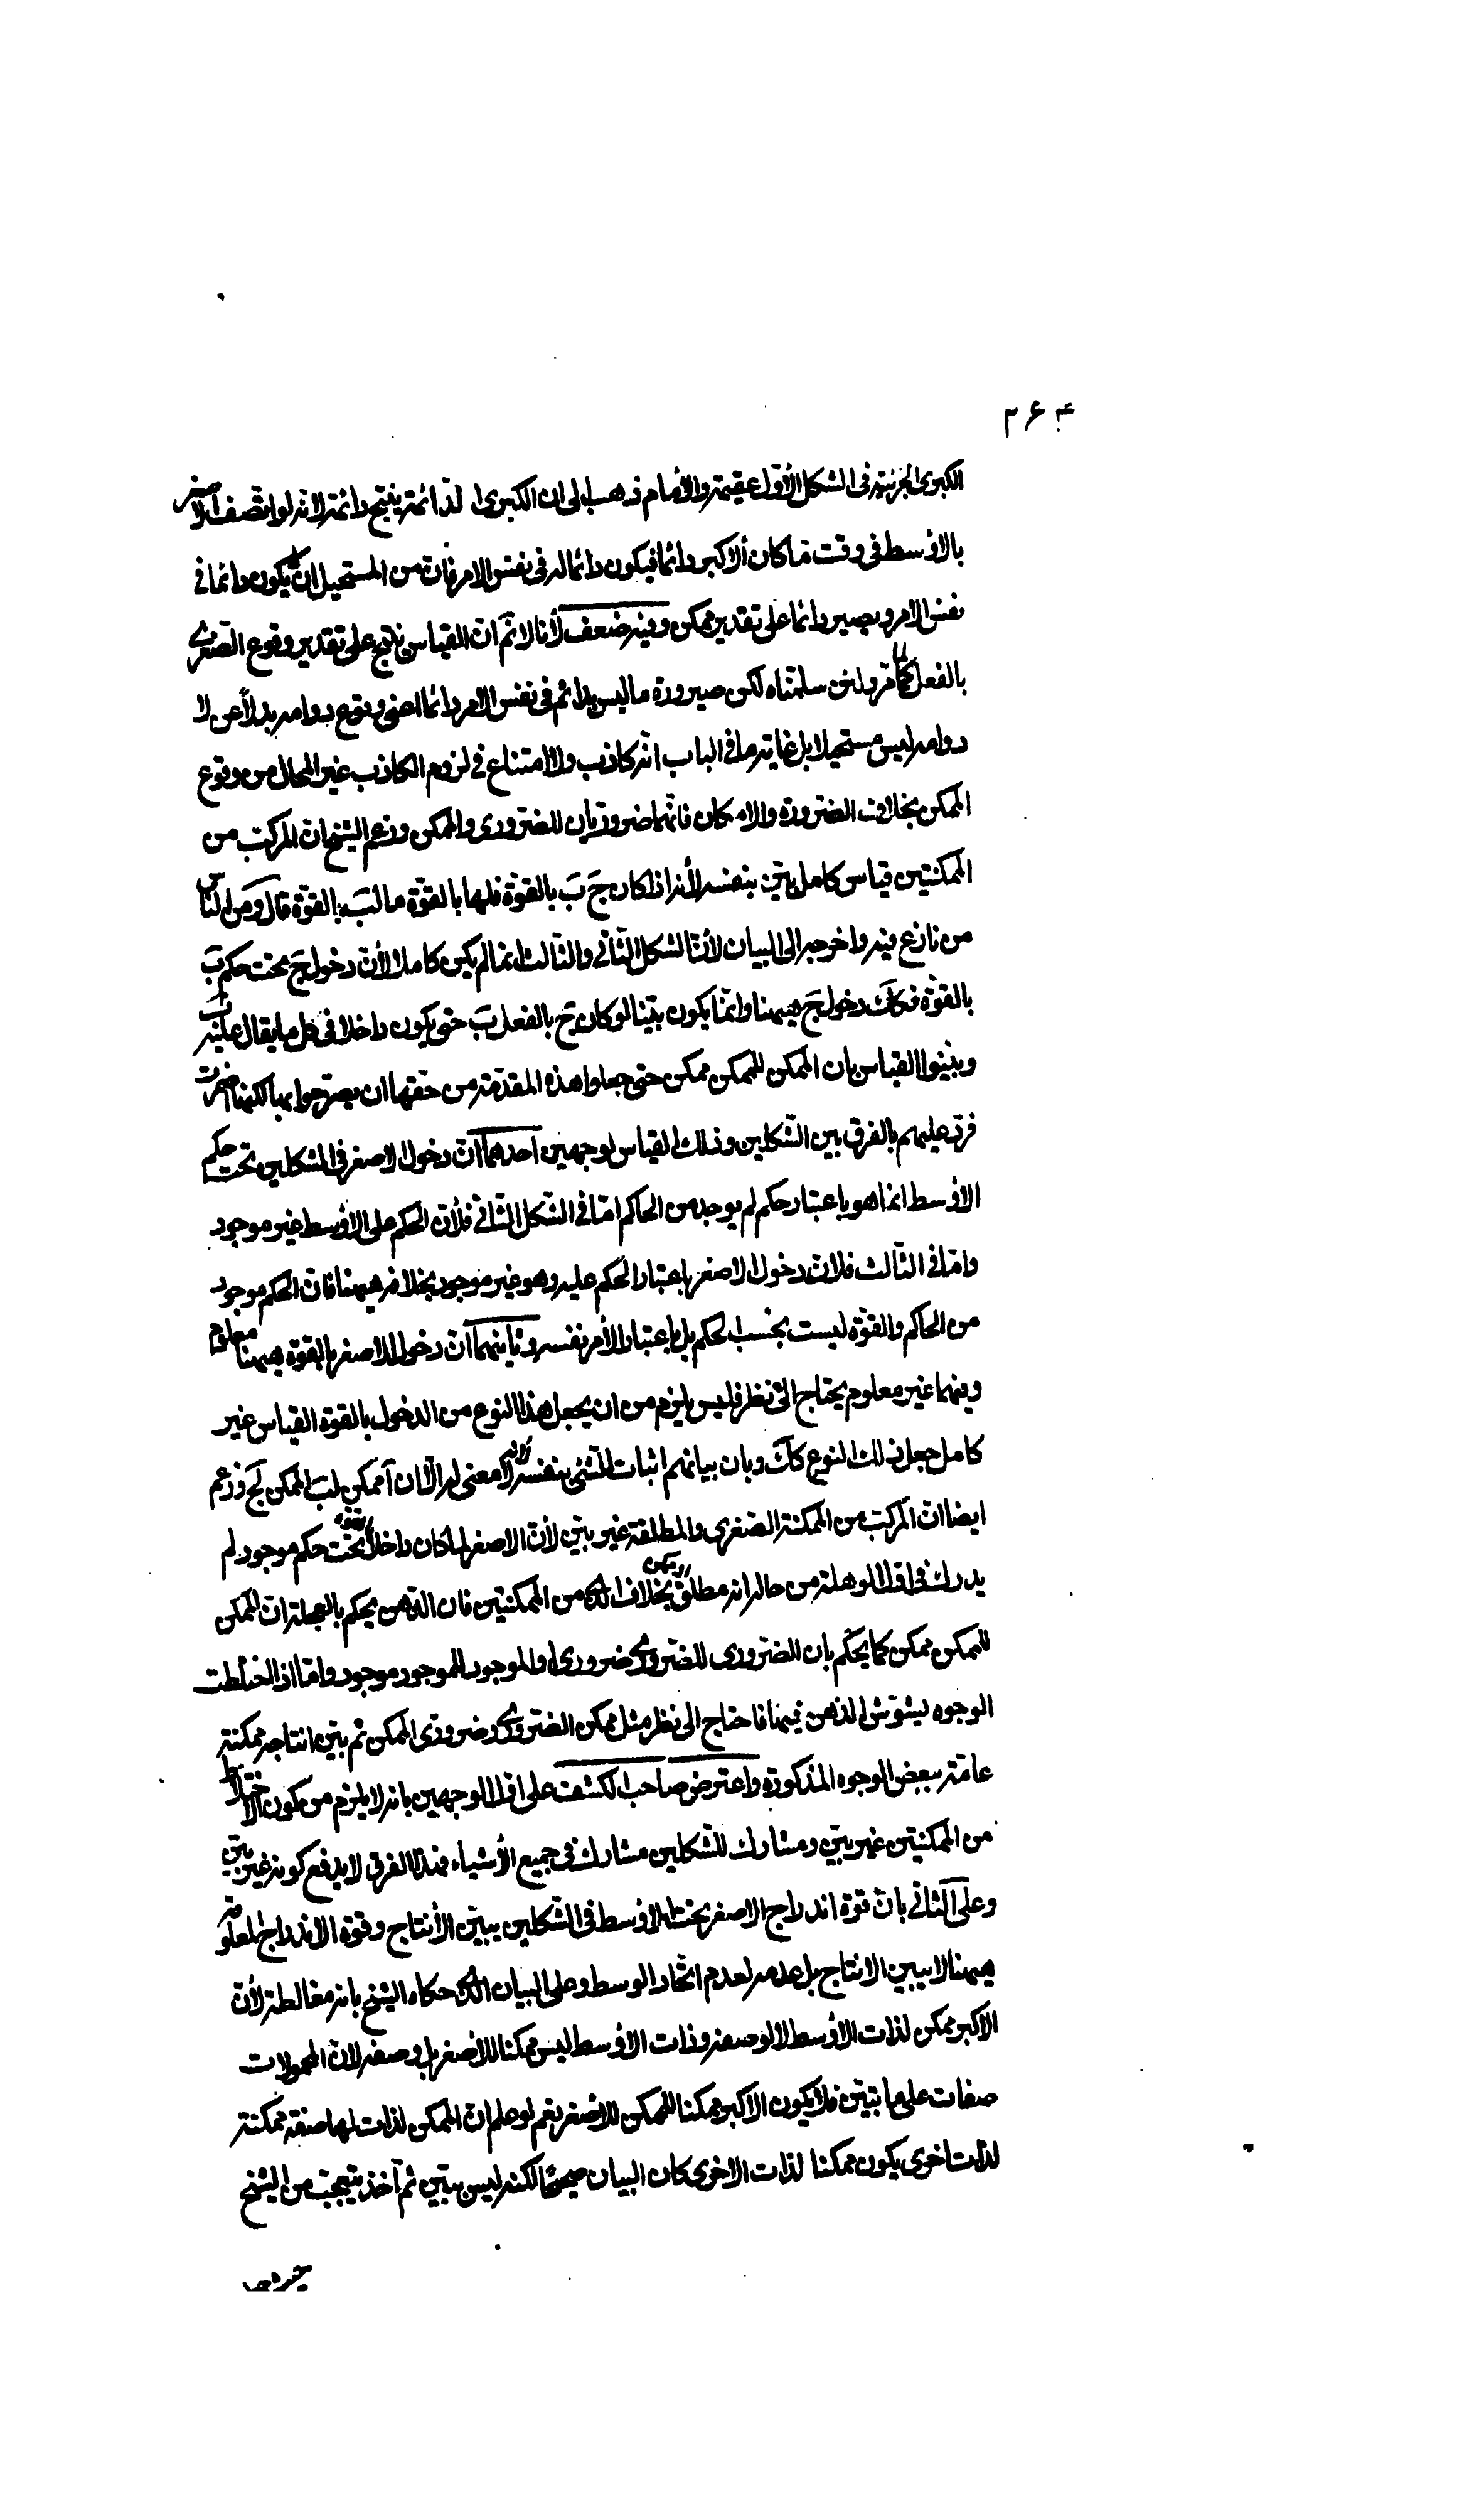 ۲۶۴
الكبرى الجزئية فى الشكل الأول عقيمة والأمام ذهب الى ان الكبرى الدائمة ينتج دائمة لانه لو اتصف الاصغر
بالاوسط فى وقت ما كان الاكبر دائما فيكون دائما له فى نفس الامر فان من المستحيل ان لا يكون دائما فى
نفس الامر ويصير دائما على تقدير ممكن وفيه ضعف لأنا لا نم ان القياس ينتج على تقدير وقوع الصغرى
بالفعل كما مر ولئن سلمناه لكن صيرورة ما ليس بدائم فى نفس الامر دائما اعنى وقوع دوامه بدلا عن لا
دوامه ليس مستحيلا بل غاية ما فى الباب انه كاذب ولا امتناع فى لزوم الكاذب غير المحال من وقوع
الممكن بخلاف الضرورة والامكان فانهما ضروريان للضرورى والممكن وزعم الشيخ ان المركب من
الممكنتين قياس كامل بين بنفسه لأنه اذا كان ج ب بالقوة فلها بالقوة ما لب بالقوة قال ومن الناس
من نازع فيه واخرجه الى البيان لأن الشكل الثانى والثالث انما لم يكن كاملا لأن دخول ج تحت حكم ب
بالقوة فكك دخول ج ههنا وانما يكون بينا لو كان ج بالفعل ب حتى يكون داخلا فى كل ما يقال عليه ب
وبينوا القياس بان الممكن للممكن ممكن حتى جعلوا هذه المقدمة من حقها ان يصرحوا بها لكنها اضمرت
فرد عليهم بالفرق بين الشكلين وذلك القياس لوجهين احدهما ان دخول الاصغر فى الشكلين تحت حكم
الاوسط انما هو باعتبار حكم لم يوجد من الحاكم اما فى الشكل الثانى فلأن الحكم على الاوسط غير موجود
واما فى الثالث فلان دخول الاصغر باعتبار الحكم عليه وهو غير موجود بخلافه ههنا فان الحكم موجود
من الحاكم والقوة ليست بحسب الحكم بل باعتبار الأمر نفسه وثانيهما ان دخول الاصغر بالقوة ههنا معلوم
وفيهما غير معلوم يحتاج الى نظر فليس يلزم من ان يجعل هذا النوع من الدخول بالقوة القياس غير
كامل جعل ذلك النوع كك وبان بيانهم اثبات للشئ بنفسه لانه لا معنى له الا ان آ ممكن لب الممكن لج وزعم
ايضا ان المركب من الممكنة الصغرى والمطلقة غير بين لأن الاصغر لما كان داخلا بالقوة تحت حكم موجود لم
يدرك فى اول الوهلة من حاله انه مطلق او ممكن بخلاف المركب من الممكنتين فان الذهن يحكم بالعجلة ان الممكن
للممكن ممكن كما يحكم بان الضرورى للضرورى ضرورى والموجود للموجود موجود واما اذا اختلطت
الوجوه ليشوش الذهن فيها فاحتاج الى نظر مثل ممكن الضرورى وضرورى الممكن ثم بين انتاجه ممكنة
عامة ببعض الوجوه المذكورة واعترض صاحب الكشف على اول الوجهين بانه لا يلزم من كون الاختلاط
من الممكنتين غير بين ومشارك للشكلين مشارك فى جميع الأشياء فهذا الفرق لا يدفع كونه غير بين
وعلى الثانى بان قوة اندراج الاصغر تحت الاوسط فى الشكلين يبين الأنتاج وقوة الاندراج المعلوم
ههنا لا يبين الانتاج بل عدمه لعدم اتحاد الوسط وعلى البيان الذى حكاه الشيخ بانه مغالطة لأن
الاكبر ممكن لذات الاوسط لا لوصفه وذات الاوسط ليس ممكنا للأصغر بل وصفه لان المحمولات
صفات على ما تبين فلا يكون الاكبر ممكنا للممكن للاصغر نعم لو علم ان الممكن لذات لها صفة ممكنة
لذات اخرى يكون ممكنا لذات الاخرى كان البيان صحيحا لكنه ليس ببين ثم آخذ يتعجب من الشيخ